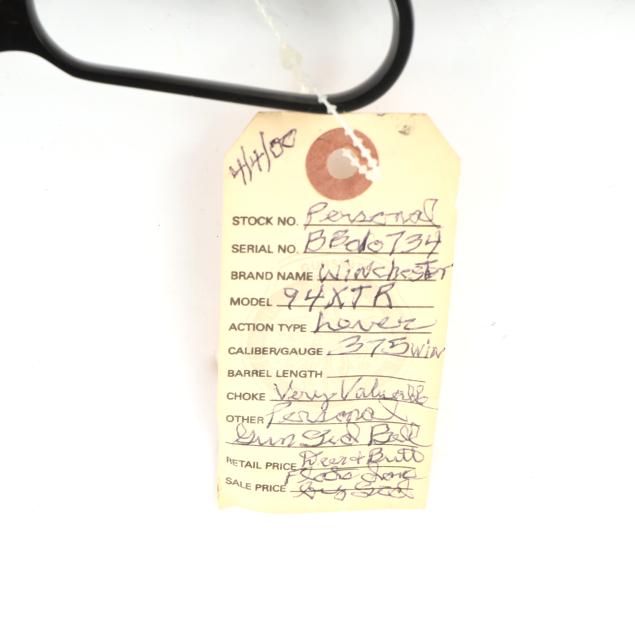 4/4/00
STOCK NO. Personal
SERIAL NO. BB
BRAND NAME Winchester
MODEL 94XTR
ACTION TYPE Lever
CALIBER/GAUGE .375 WIN
BARREL LENGTH
CHOKE Very Valuable
OTHER Personal
Gun Ted Bell
RETAIL PRICE
SALE PRICE